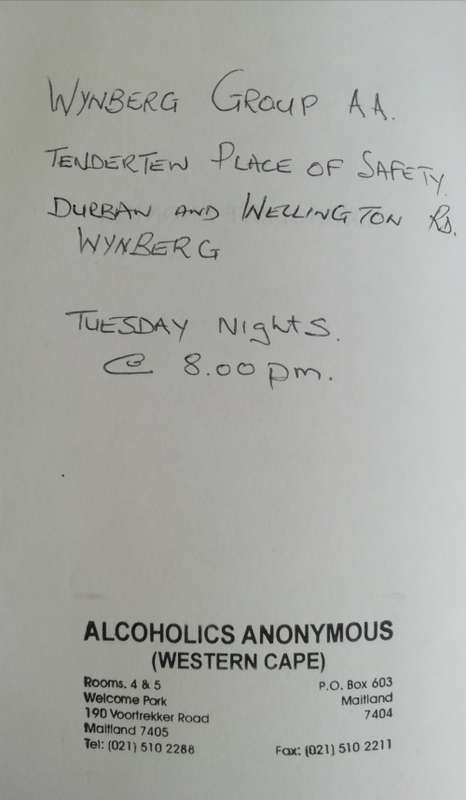 WYNBERG GROUP A A.
TENDERTEN PLACE OF SAFETY.
DURBAN AND WELLINGTON RD.
WYNBERG
TUESDAY NIGHTS.
@ 8.00 pm.
ALCOHOLICS ANONYMOUS
(WESTERN CAPE)
Rooms. 4 & 5
Welcome Park
190 Voortrekker Road
Maitland 7405
Tel: (021) 510 2288
P.O. Box 603
Maitland
7404
Fax: (021) 510 2211